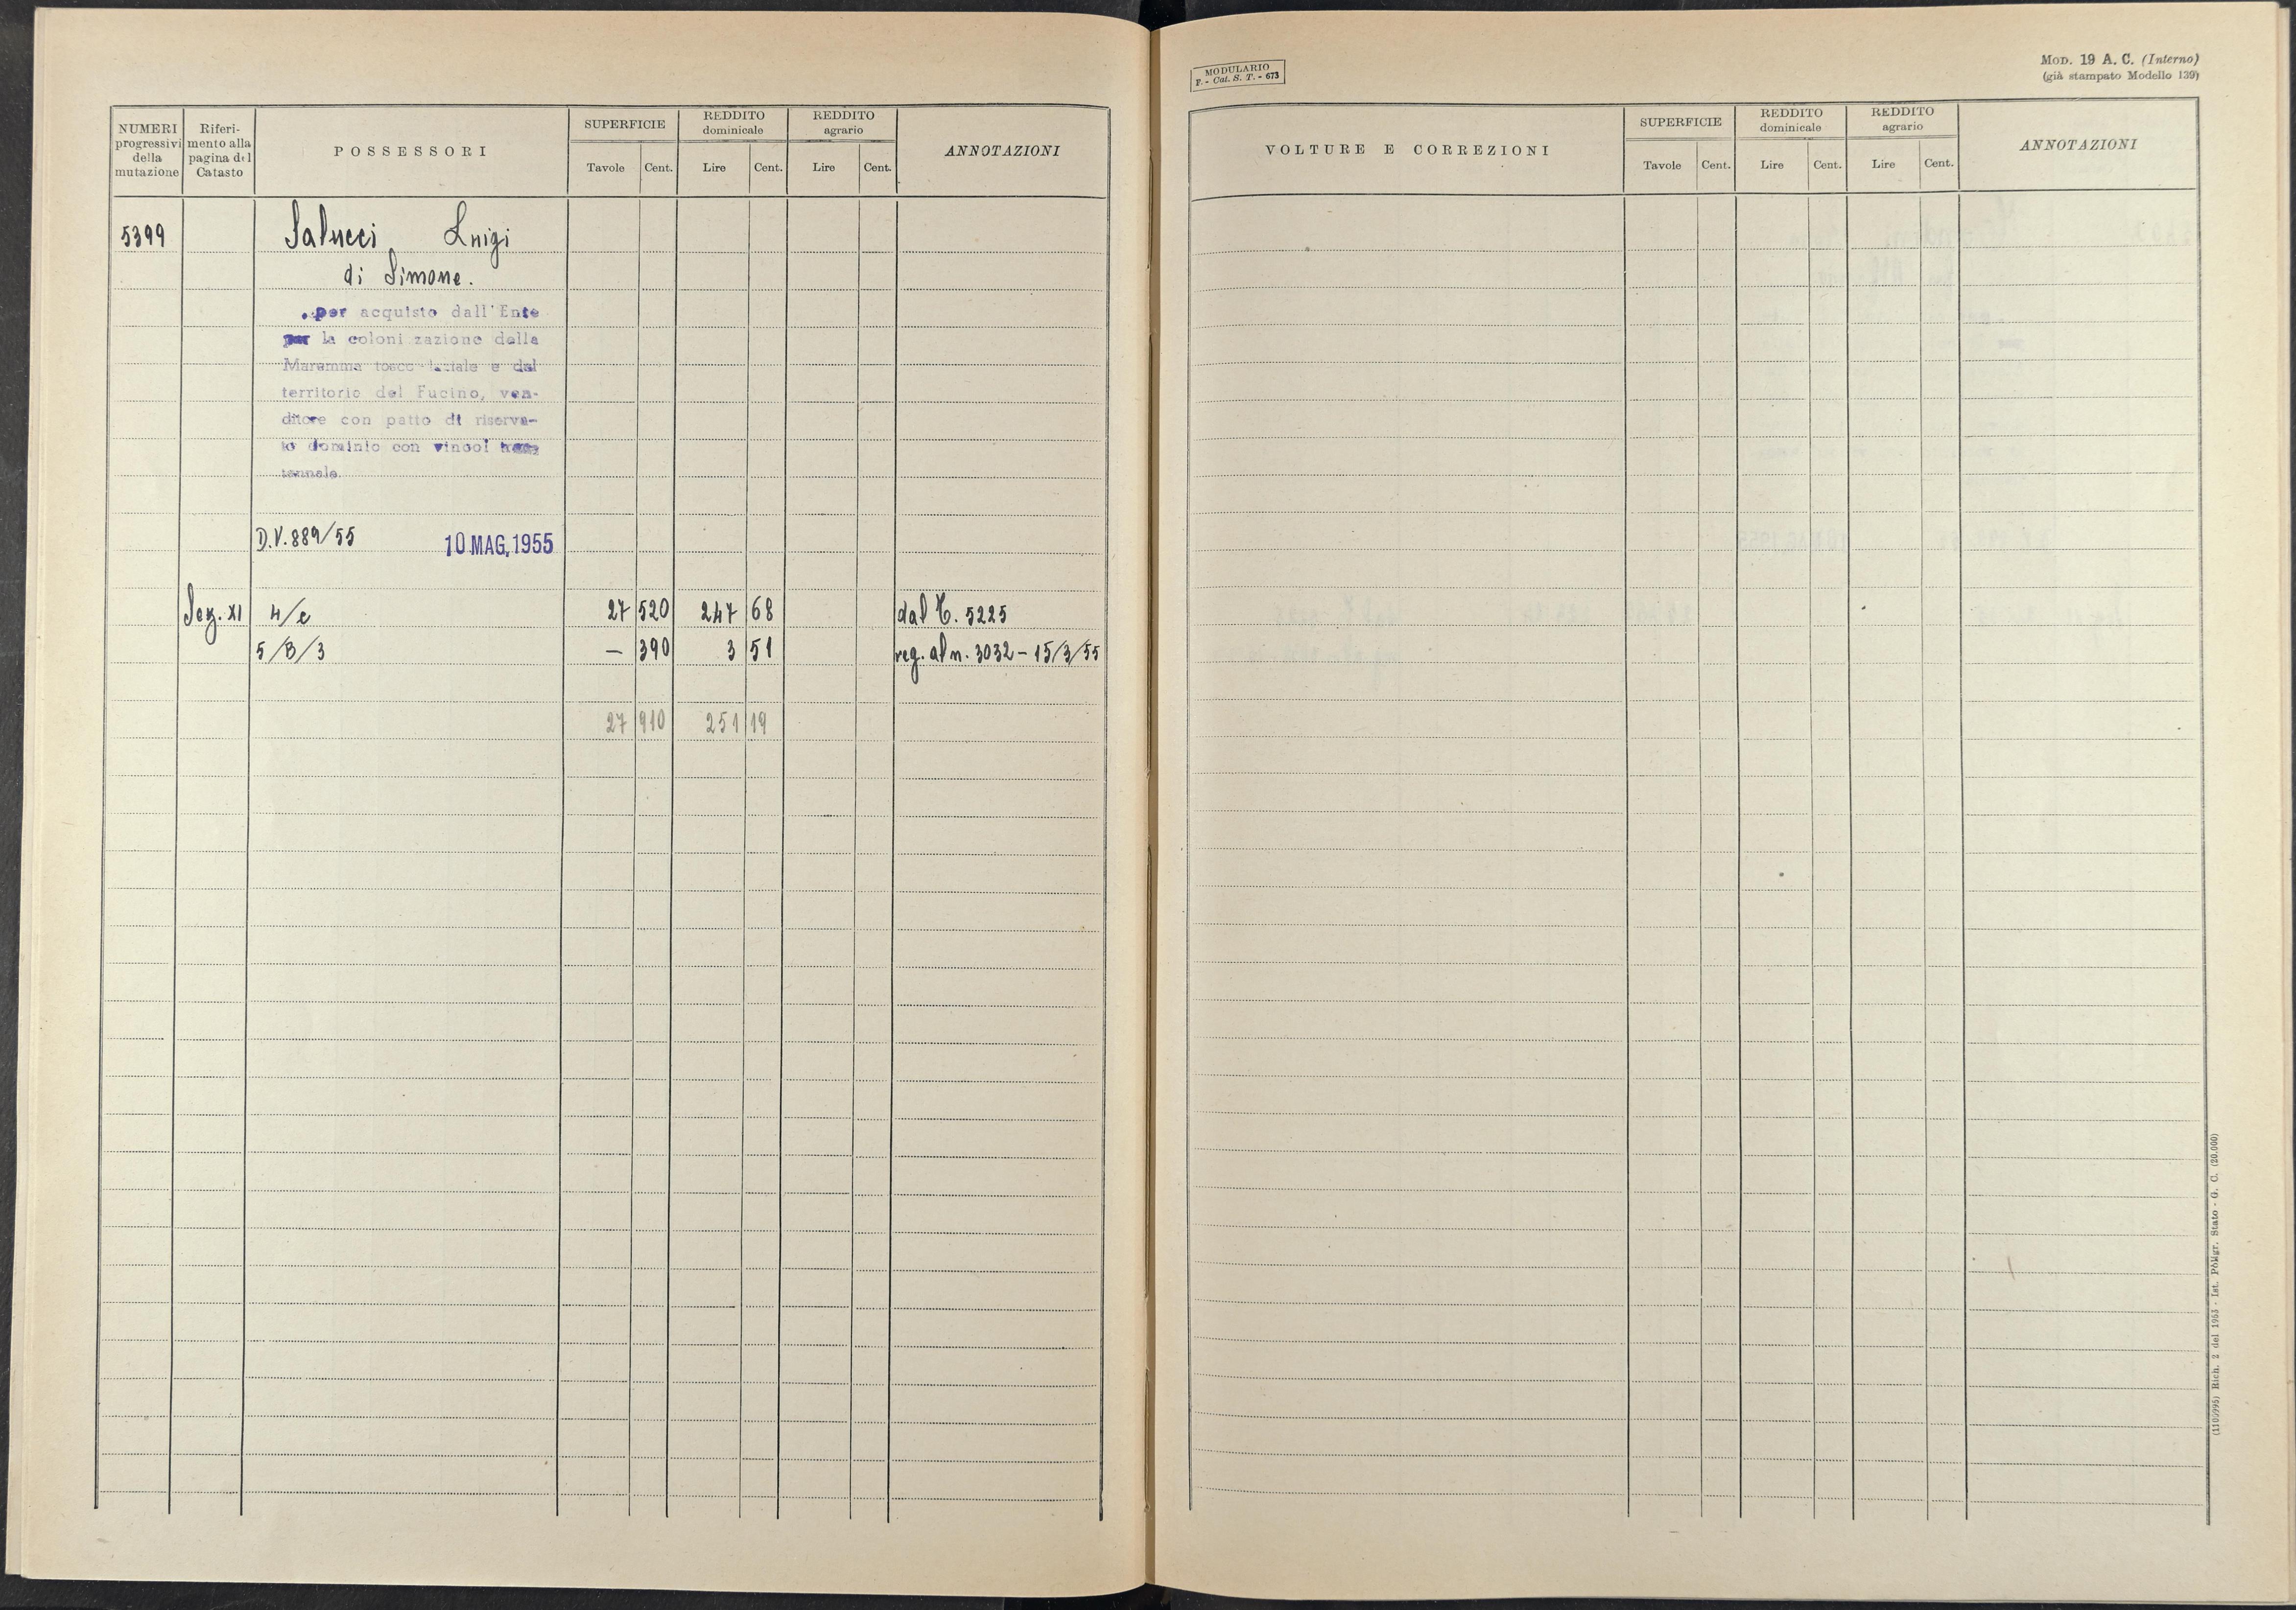 NUMERI progressivi della mutazione
Riferimento alla pagina del Catasto
POSSESSORI
SUPERFICIE
Tavole Cent.
REDDITO dominicale
Lire Cent.
REDDITO agrario
Lire Cent.
ANNOTAZIONI
5399 Salucci Luigi
di Simone.
per acquisto dall'Ente
per la colonizzazione della
Maremma tosco-laziale e del
territorio del Fucino, ven-
ditore con patto di riserva-
to dominio con vincol
tennale.
D.V. 889/55 10 MAG. 1955
Sez. XI 4/c 27 520 247 68 dal C. 5225
5/B/3 — 390 3 51 reg. al n. 3032 - 15/3/55
27 910 251 19
MODULARIO
F. - Cat. S. T. - 673
MOD. 19 A. C. (Interno)
(già stampato Modello 139)
VOLTURE E CORREZIONI
SUPERFICIE
Tavole Cent.
REDDITO dominicale
Lire Cent.
REDDITO agrario
Lire Cent.
ANNOTAZIONI
Rich. 2 del 1953 - Ist. Poligr. Stato - G. C. (20.000)